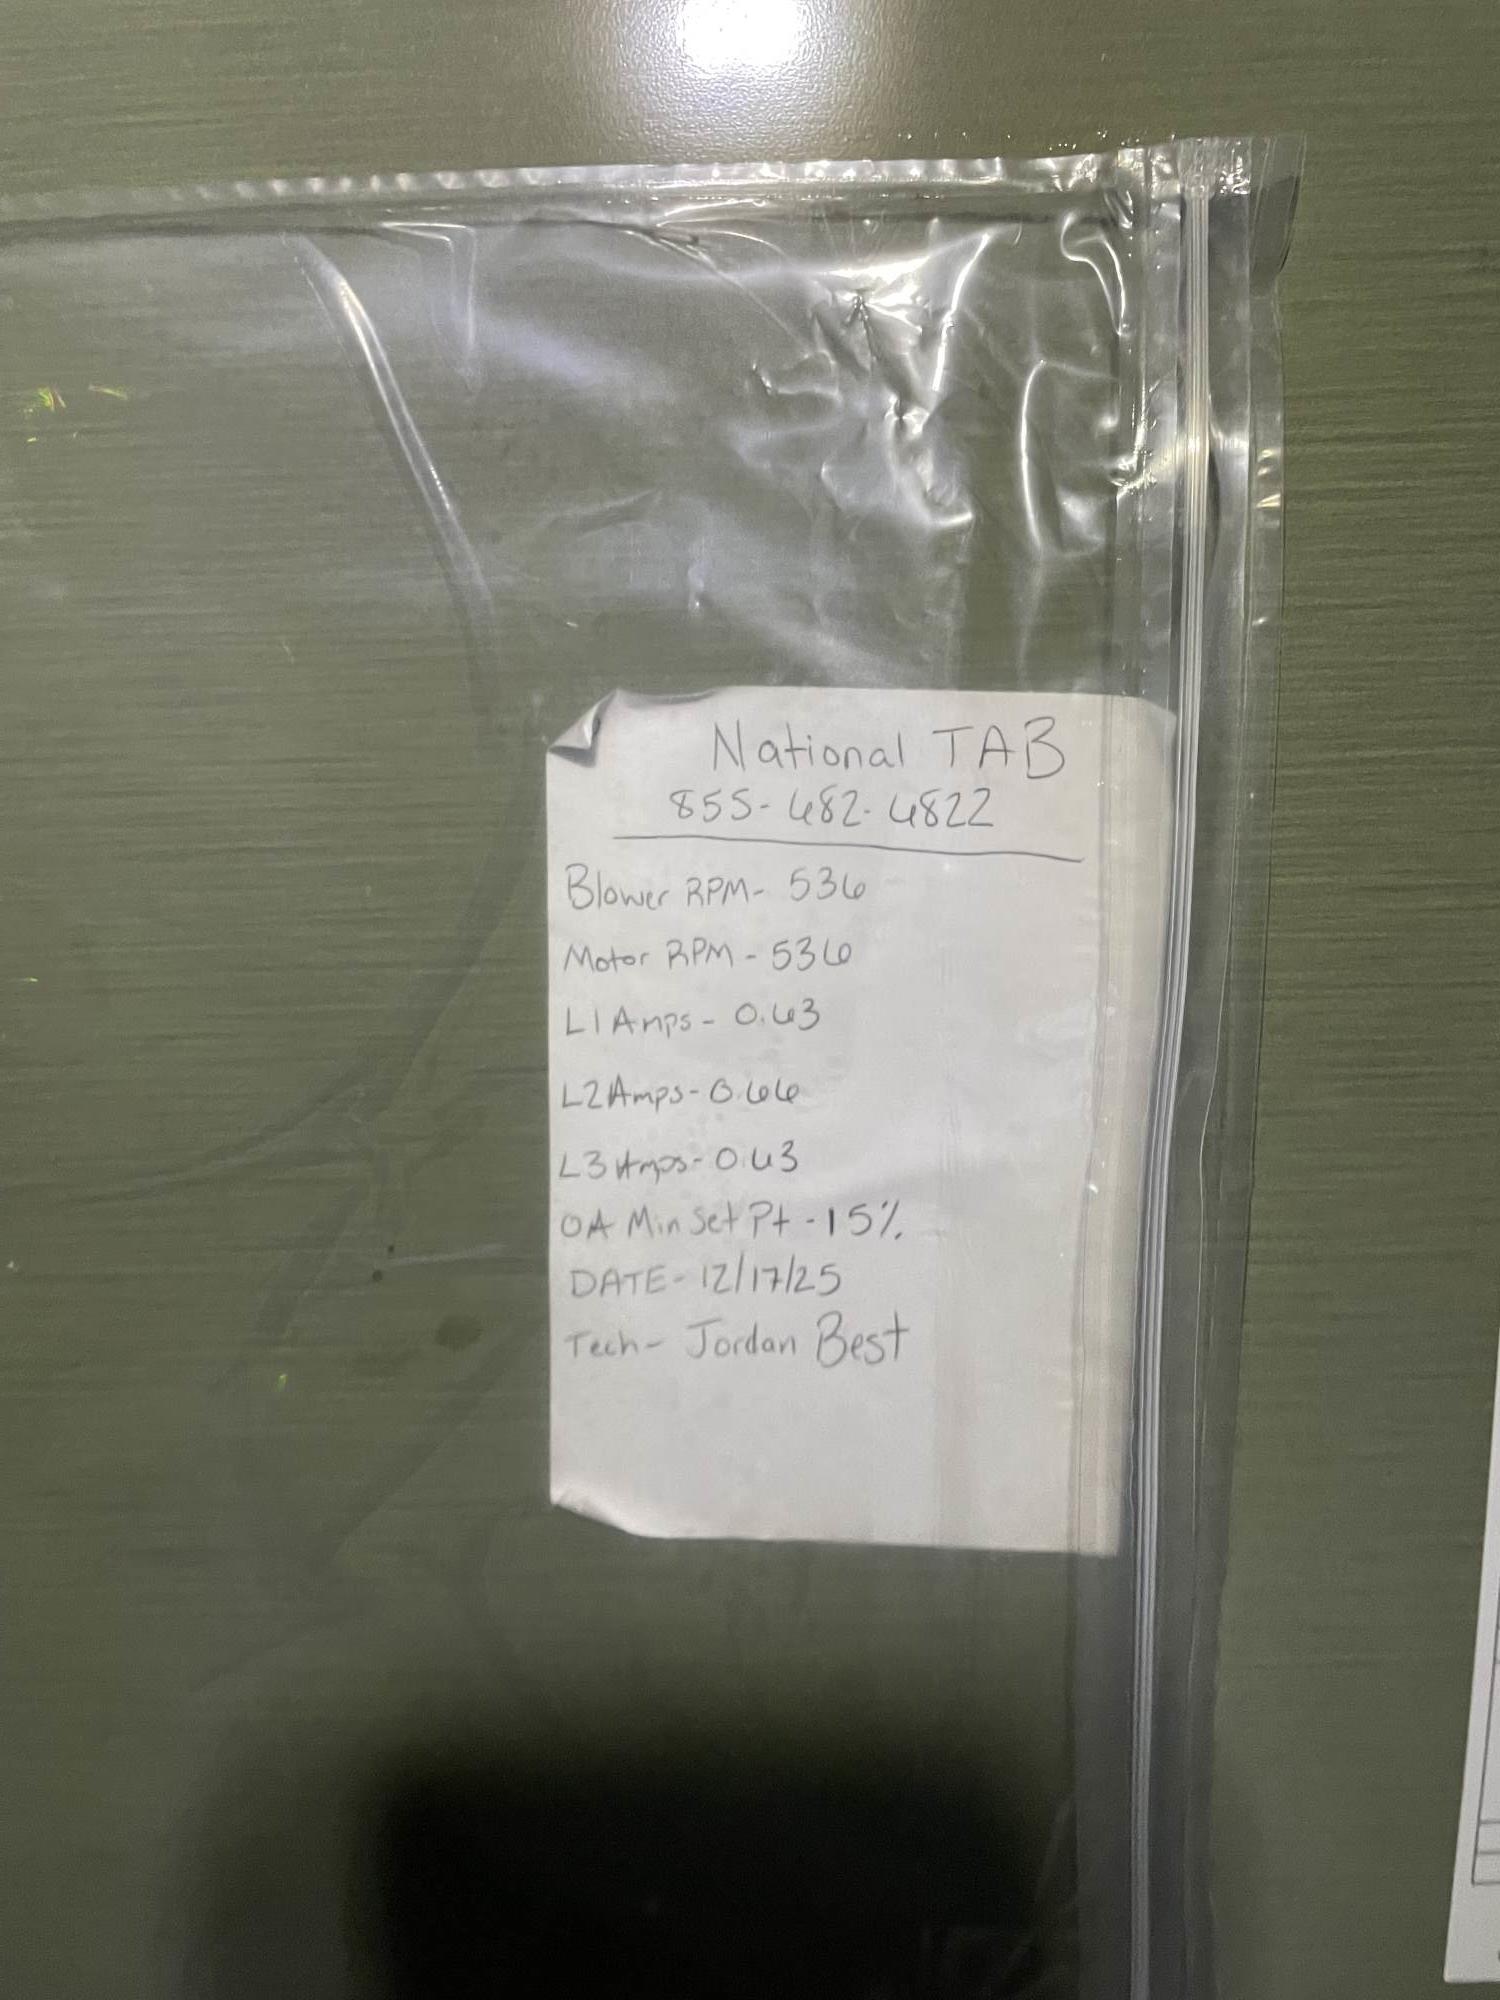 National TAB
855-482-4822
Blower RPM- 536
Motor RPM - 536
L1 Amps - 0.63
L2 Amps - 0.66
L3 Amps - 0.63
OA Min Set Pt - 15%
DATE - 12/17/25
Tech - Jordan Best